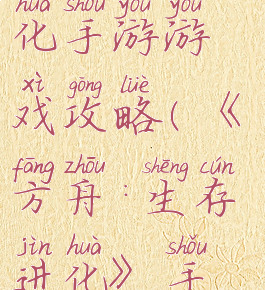 huà shǒu yóu yóu
化手游游
xì gōng lüè
戏攻略(《
fāng zhōu shēng cún
方舟:生存
jìn huà shǒu
进化》 手